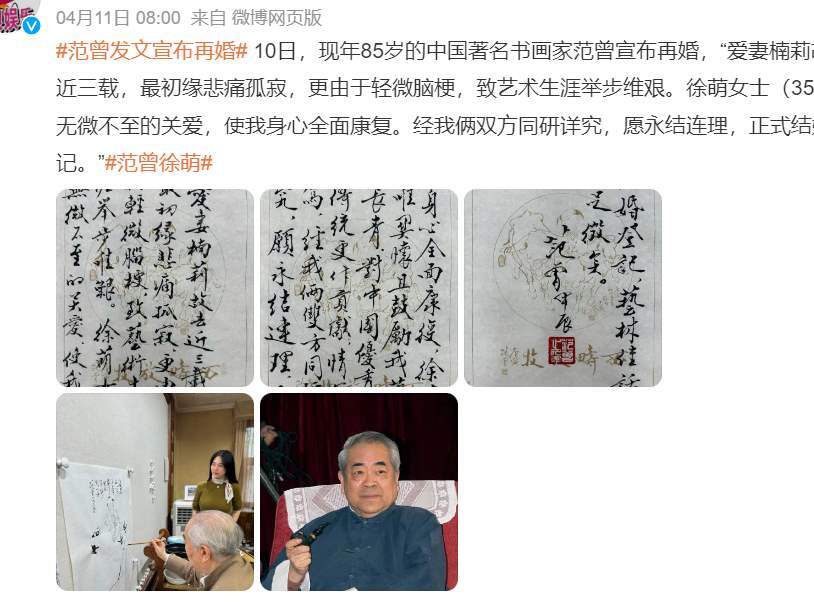 04月11日 08:00 来自 微博网页版
#范曾发文宣布再婚# 10日，现年85岁的中国著名书画家范曾宣布再婚，“爱妻楠莉
近三载，最初缘悲痛孤寂，更由于轻微脑梗，致艺术生涯举步维艰。徐萌女士（35
无微不至的关爱，使我身心全面康复。经我俩双方同研详究，愿永结连理，正式结
记。”#范曾徐萌#
愛妻楠莉故去近三載
初緣悲痛孤寂更
輕微腦梗致藝術
舉步維艱。徐萌
無微不至的关愛，使我
身心全面康復，徐
唯契懷且鼓勵我
長青對中國優秀
傳統更作貢獻情
篤，經我倆雙方同
究，願永结連理，
婚登記藝林佳話
足徵矣。
范曾甲辰